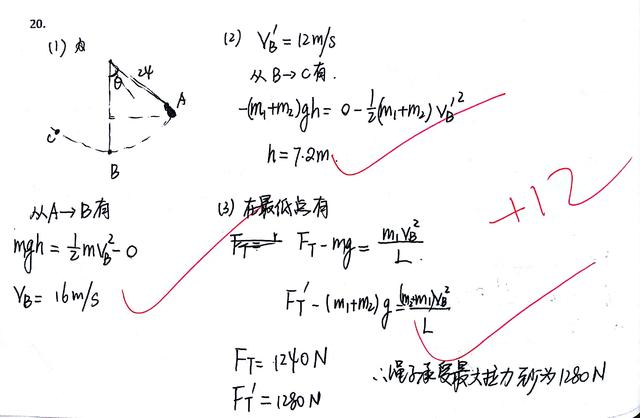 20.
(1)
θ
24
A
C
B
从A→B有
mgh = ½mV_B² - 0
V_B = 16m/s
(2) V_B' = 12m/s
从B→C有.
-(m₁+m₂)gh = 0 - ½(m₁+m₂)V_B'²
h = 7.2m.
(3) 在最低点有
F_T - mg = m₁V_B²/L.
F_T' - (m₁+m₂)g = (m₂+m₁)V_B²/L
F_T = 1240N
F_T' = 1280N
∴绳子承受最大拉力至少为1280N
+12